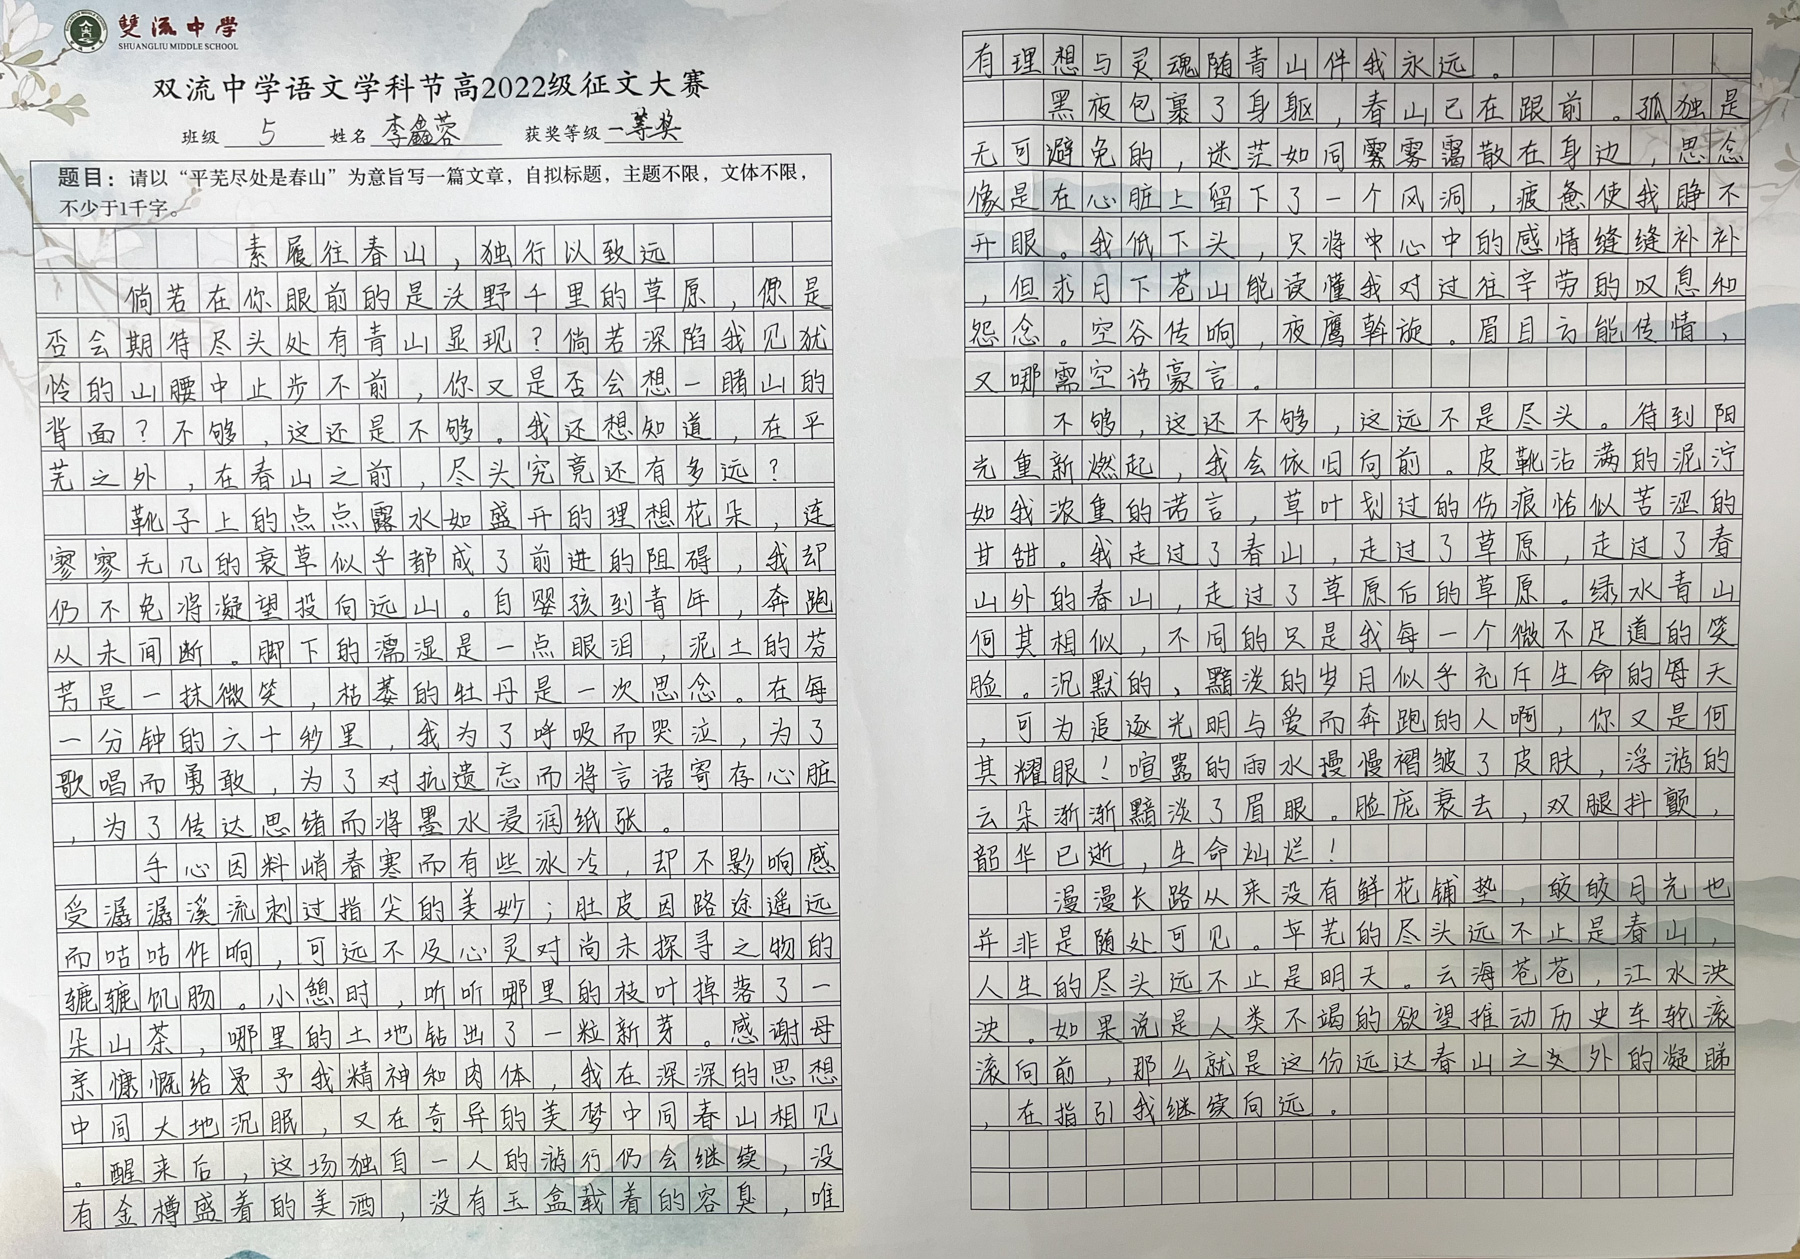 雙流中学
SHUANGLIU MIDDLE SCHOOL
双流中学语文学科节高2022级征文大赛
班级 5 姓名 李鑫蓉 获奖等级 一等奖
题目：请以“平芜尽处是春山”为意旨写一篇文章，自拟标题，主题不限，文体不限，
不少于1千字。
素履往春山，独行以致远
倘若在你眼前的是沃野千里的草原，你是
否会期待尽头处有青山显现？倘若深陷我见犹
怜的山腰中止步不前，你又是否会想一睹山的
背面？不够，这还是不够。我还想知道，在平
芜之外，在春山之前，尽头究竟还有多远？
靴子上的点点露水如盛开的理想花朵，连
寥寥无几的衰草似乎都成了前进的阻碍，我却
仍不免将凝望投向远山。自婴孩到青年，奔跑
从未间断。脚下的濡湿是一点眼泪，泥土的芬
芳是一抹微笑，枯萎的牡丹是一次思念。在每
一分钟的六十秒里，我为了呼吸而哭泣，为了
歌唱而勇敢，为了对抗遗忘而将言语寄存心脏
，为了传达思绪而将墨水浸润纸张。
手心因料峭春寒而有些冰冷，却不影响感
受潺潺溪流刺过指尖的美妙；肚皮因路途遥远
而咕咕作响，可远不及心灵对尚未探寻之物的
辘辘饥肠。小憩时，听听哪里的枝叶掉落了一
朵山茶，哪里的土地钻出了一粒新芽。感谢母
亲慷慨给予我精神和肉体，我在深深的思想
中同大地沉眠，又在奇异的美梦中同春山相见
。醒来后，这场独自一人的游行仍会继续，没
有金樽盛着的美酒，没有玉盒载着的容臭，唯
有理想与灵魂随青山伴我永远。
黑夜包裹了身躯，春山已在跟前。孤独是
无可避免的，迷茫如同雾霭散在身边，思念
像是在心脏上留下了一个风洞，疲惫使我睁不
开眼。我低下头，只将心中的感情缝缝补补
，但求月下苍山能读懂我对过往辛劳的叹息和
怨念。空谷传响，夜鹰斡旋。眉目亦能传情，
又哪需空话豪言。
不够，这还不够，这远不是尽头。待到阳
光重新燃起，我会依旧向前。皮靴沾满的泥泞
如我浓重的诺言，草叶划过的伤痕恰似苦涩的
甘甜。我走过了春山，走过了草原，走过了春
山外的春山，走过了草原后的草原。绿水青山
何其相似，不同的只是我每一个微不足道的笑
脸。沉默的、黯淡的岁月似乎充斥生命的每天
，可为追逐光明与爱而奔跑的人啊，你又是何
其耀眼！喧嚣的雨水慢慢褶皱了皮肤，浮游的
云朵渐渐黯淡了眉眼。脸庞衰去，双腿抖颤，
韶华已逝，生命灿烂！
漫漫长路从来没有鲜花铺垫，皎皎月光也
并非是随处可见。平芜的尽头远不止是春山，
人生的尽头远不止是明天。云海苍苍，江水泱
泱。如果说是人类不竭的欲望推动历史车轮滚
滚向前，那么就是这份远达春山之外的凝睇
，在指引我继续向远。